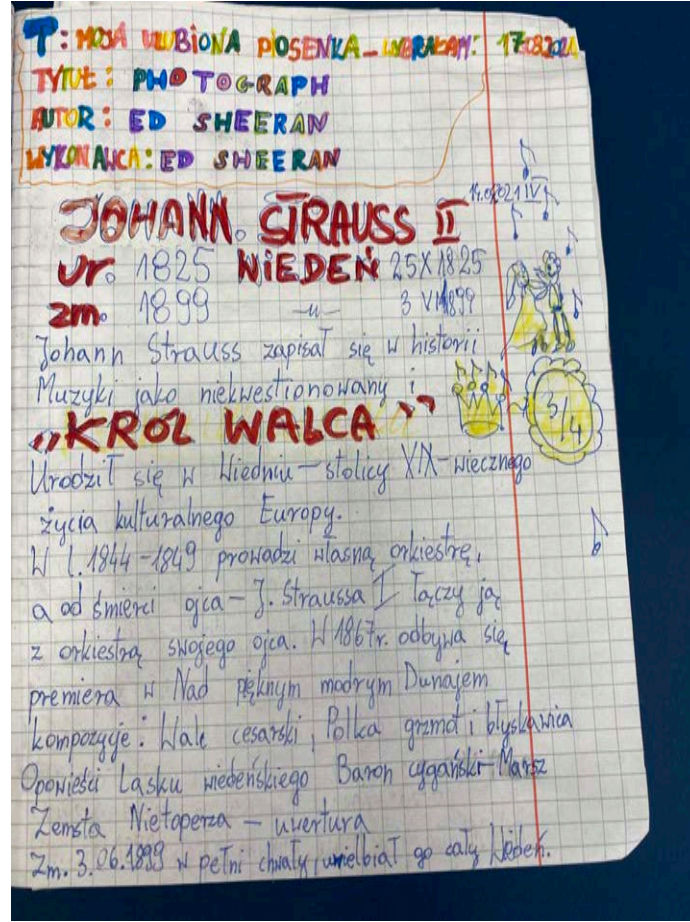 T: MOJA ULUBIONA PIOSENKA - WYBRAŁAM: 17.03.2021
TYTUŁ: PHOTOGRAPH
AUTOR: ED SHEERAN
WYKONAWCA: ED SHEERAN
14.04.2021 IV
JOHANN. STRAUSS II
ur. 1825 WIEDEŃ 25X1825
zm. 1899 -u- 3 VI 1899
Johann Strauss zapisał się w historii
Muzyki jako niekwestionowany i
„KRÓL WALCA”
3/4
Urodził się w Wiedniu - stolicy XIX-wiecznego
życia kulturalnego Europy.
W l. 1844-1849 prowadzi własną orkiestrę,
a od śmierci ojca - J. Straussa I łączy ją
z orkiestrą swojego ojca. W 1867r. odbywa się
premiera w Nad pięknym modrym Dunajem
kompozycje: Walc cesarski, Polka grzmot i błyskawica
Opowieści Lasku wiedeńskiego Baron cygański-Marsz
Zemsta Nietoperza - uwertura
Zm. 3.06.1899 w pełni chwały, uwielbiał go cały Wiedeń.